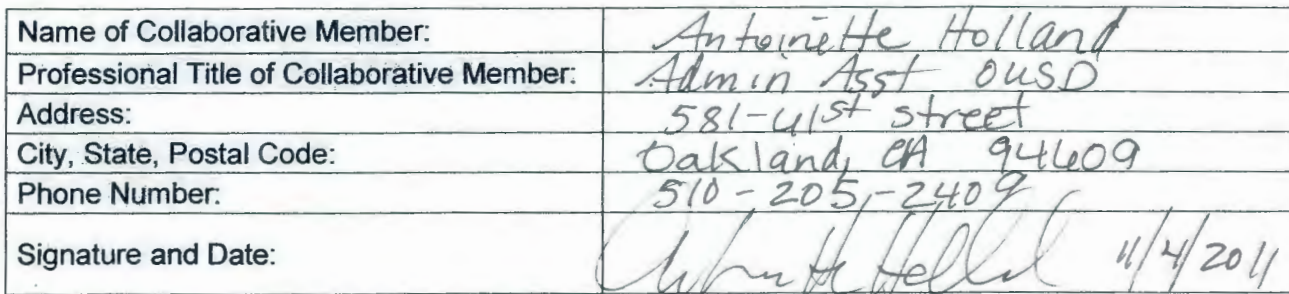 Name of Collaborative Member: Antoinette Holland
Professional Title of Collaborative Member: Admin Asst OUSD
Address: 581-41st street
City, State, Postal Code: Oakland, CA 94609
Phone Number: 510-205-2409
Signature and Date: Antoinette Holland 11/4/2011